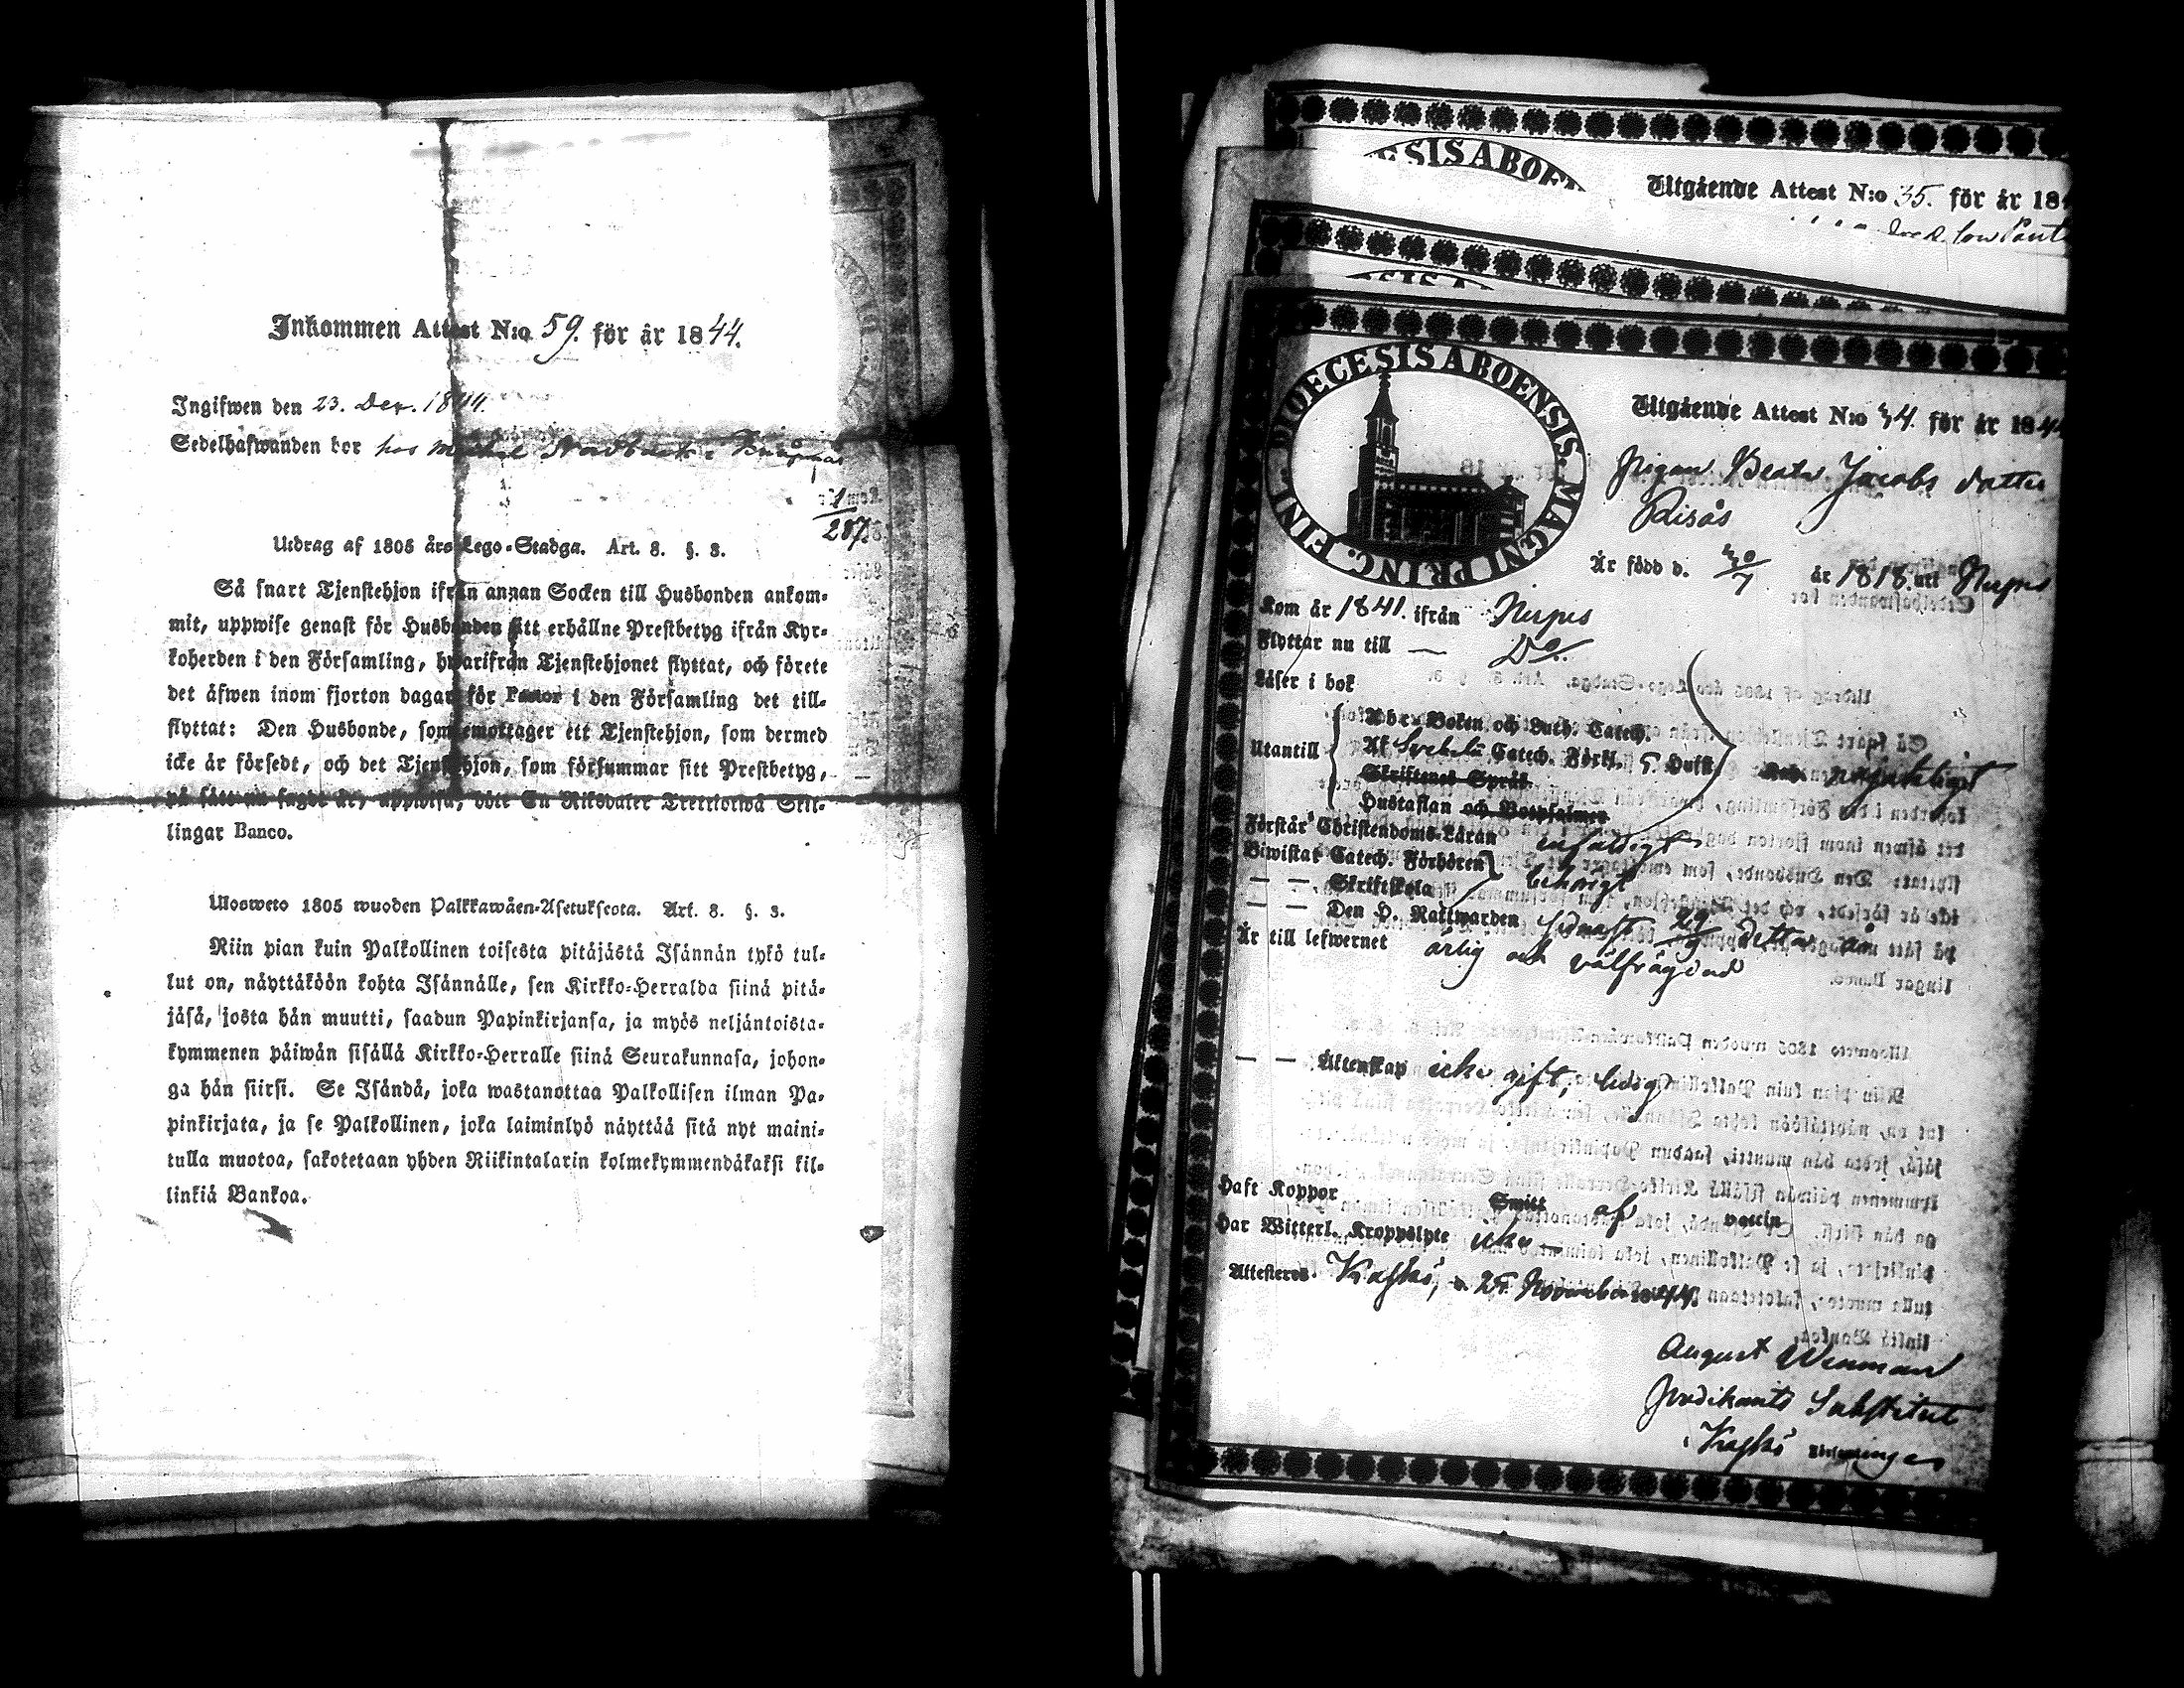 Inkommen Attest N:o 59. för år 1844.
Ingifwen den 23. Dec. 1844.
Sedelhafwanden bor hos
1
287
Utdrag af 1805 års Lego-Stadga. Art. 8. §. 3.
Så snart Tjenstehjon ifrån annan Socken till Husbonden ankom-
mit, uppwise genast för Husbonden sitt erhållne Prestbetyg ifrån Kyr-
koherden i den Församling, hwarifrån Tjenstehjonet flyttat, och förete
det äfwen inom fjorton dagar för Pastor i den Församling det till-
flyttat: Den Husbonde, som emottager ett Tjenstehjon, som dermed
icke är försedt, och det Tjenstehjon, som försummar sitt Prestbetyg,
på sätt nu sagdt är, uppwisa, böte En Riksdaler Trettiotwå Skil-
lingar Banco.
Ulosweto 1805 wuoden Palkkawäen-Asetuksesta. Art. 8. §. 3.
Niin pian kuin Palkollinen toisesta pitäjästä Isännän tykö tul-
lut on, näyttäköön kohta Isännälle, sen Kirkko-Herralda siinä pitä-
jäsä, josta hän muutti, saadun Papinkirjansa, ja myös neljäntoista-
kymmenen päiwän sisällä Kirkko-Herralle siinä Seurakunnasa, johon-
ga hän siirsi. Se Isändä, joka wastanottaa Palkollisen ilman Pa-
pinkirjata, ja se Palkollinen, joka laiminlyö näyttää sitä nyt maini-
tulla muotoa, sakotetaan yhden Riikintalarin kolmekymmendäkaksi kil-
linkiä Bankoa.
ESIS ABOEN
Utgående Attest N:o 35. för år 184
DIOECESIS ABOENSIS. MAGNI PRINC. FINL.
Utgående Attest N:o 34. för år 1844
Pigan Beata Jacobs dotter
Risås
Är född d. 30/7 år 1818. uti Nerpes
Kom år 1841. ifrån Nerpes
Flyttar nu till — Do.
Läser i bok
Utantill
Abc-Boken och Luth. Catech.
Af Svebelii Catech. Förkl. 5. Hufst.
nöjaktigt
Skriftenes Språk
Hustaflan och Botpsalmer
Förstår Christendoms-Läran enfaldigt
Biwistat Catech. Förhören
behörigt
— — Skriftskola
— — Den H. Nattwarden sednast 29/9 detta år
Är till lefwernet ärlig och välfrägdad
— — Äktenskap icke gift, ledig
Haft Koppor Smitt af vaccin
Har Witterl. Kroppslyte icke
Attesteras Kaskö, d. 25 November 1844.
August Wenman
Predikants Substitut
i Kaskö